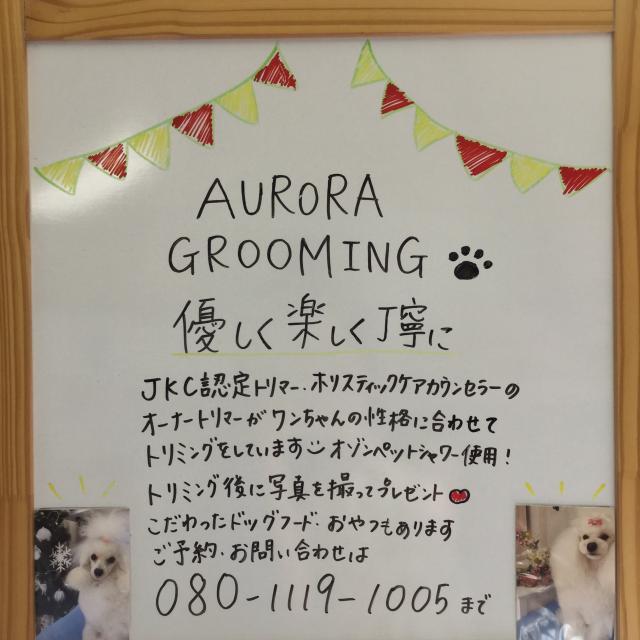 AURORA
GROOMING
優しく楽しく丁寧に
JKC認定トリマー・ホリスティックケアカウンセラーの
オーナートリマーがワンちゃんの性格に合わせて
トリミングをしています オゾンペットシャワー使用!
トリミング後に写真を撮ってプレゼント
こだわったドッグフード・おやつもあります
ご予約・お問い合わせは
080-1119-1005まで